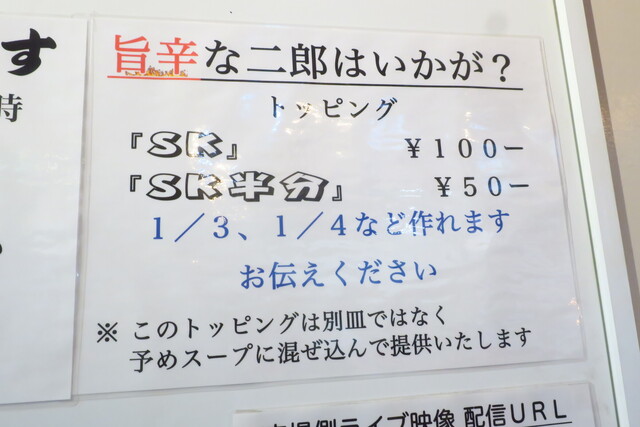 す
時
旨辛な二郎はいかが？
トッピング
『SK』 ￥１００ー
『SK半分』 ￥５０ー
１／３、１／４など作れます
お伝えください
※ このトッピングは別皿ではなく
予めスープに混ぜ込んで提供いたします
ライブ映像 配信ＵＲＬ